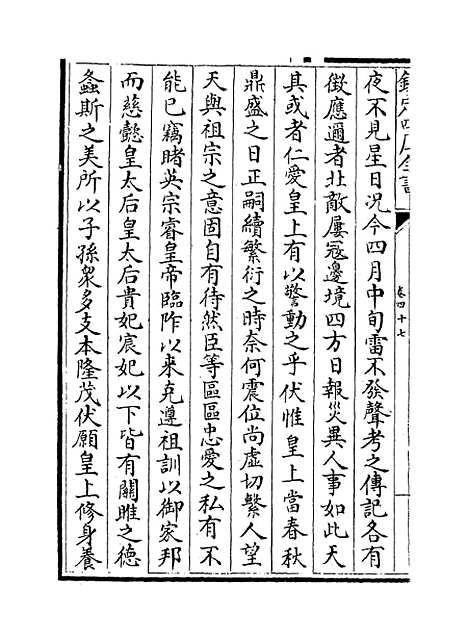 欽定四庫全書
卷四十七
夜不見星日況今四月中旬雷不發聲考之傳記各有
徴應邇者北敵屢寇邊境四方日報災異人事如此天
其或者仁愛皇上有以警動之乎伏惟皇上當春秋
鼎盛之日正嗣續繁衍之時奈何震位尚虛切繫人望
天與祖宗之意固自有待然臣等區區忠愛之私有不
能已竊睹英宗睿皇帝臨阼以來克遵祖訓以御家邦
而慈懿皇太后皇太后貴妃宸妃以下皆有關雎之德
螽斯之美所以子孫衆多支本隆茂伏願皇上修身養